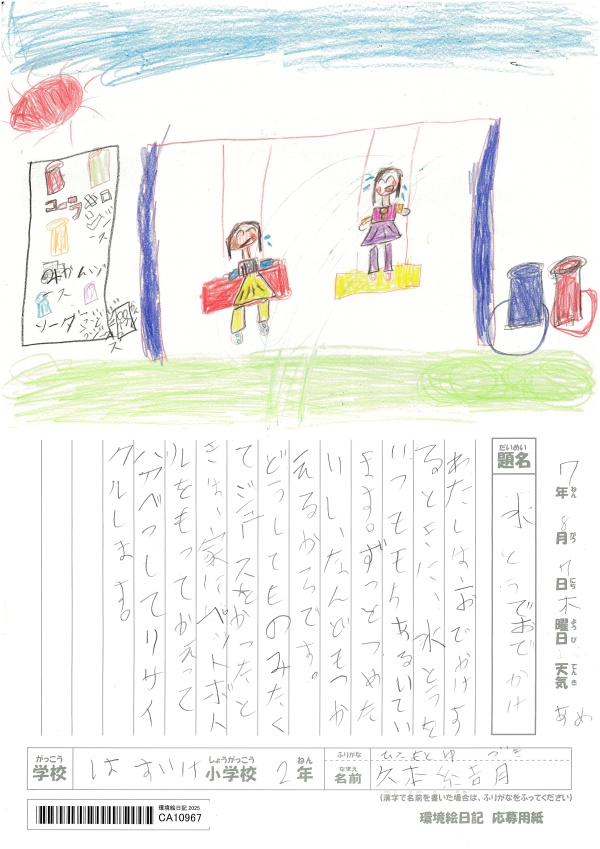 コーラ
ソーダ
7年8月7日木曜日 天気 あめ
ねん
がつ
にち
ようび
てんき
だいめい
題名
水とうでおでかけ
わたしは、おでかけす
るときに、水とうを
いつももちあるいてい
ます。ずっとつめた
いし、なんどもつか
えるからです。
どうしてものみたく
てジュースをかったと
きは、家にペットボト
ルをもってかえって
分べつしてリサイ
クルします。
がっこう
学校
はすいけ
しょうがっこう
小学校
2年
ねん
ふりがな
なまえ
名前
久本
月
(漢字で名前を書いた場合は、ふりがなをふってください)
環境絵日記 2025
CA10967
環境絵日記 応募用紙